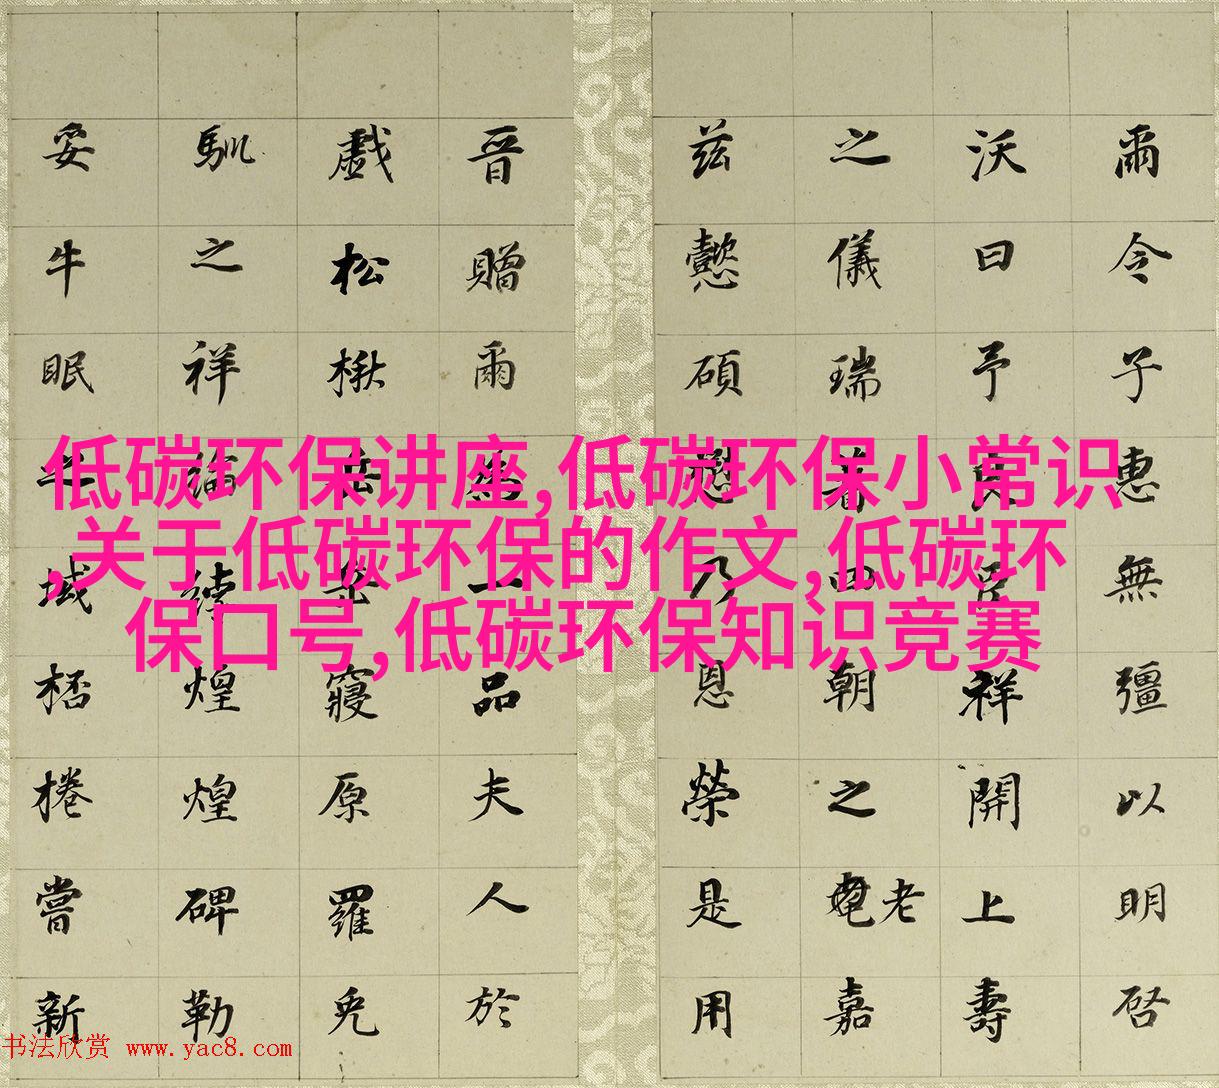 爾令子惠無彊以明啓
沃曰予良臣祥開上壽
之儀瑞著四朝之老嘉
茲懿碩乃恩榮是用
晉贈爾為一品夫人於
戲松楸寢原羅
馴之祥煌煌碑勒
妥牛眠之域桮棬嘗新
低碳环保讲座,低碳环保小常识
,关于低碳环保的作文,低碳环
保口号,低碳环保知识竞赛
书法欣赏 www.yac8.com